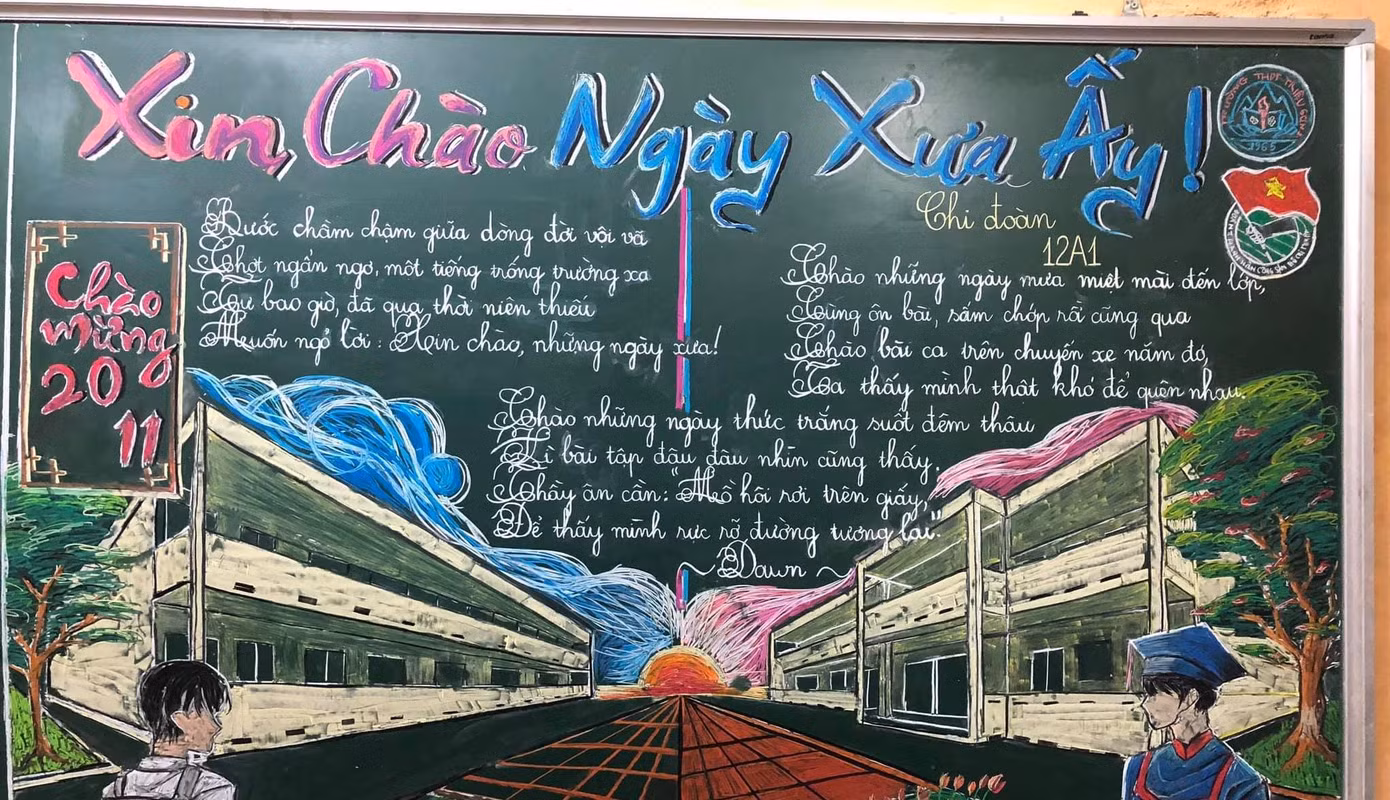 Xin Chào Ngày Xưa Ấy!
TRƯỜNG THPT THIỆU HÓA
1965
Chi đoàn
12A1
Chào
mừng
20
11
Bước chầm chậm giữa dòng đời vội vã
Chợt ngẩn ngơ, một tiếng trống trường xa
Từ bao giờ, đã qua thời niên thiếu
Muốn ngỏ lời: Xin chào, những ngày xưa!
Chào những ngày mưa miệt mài đến lớp,
Cùng ôn bài, sấm chớp rồi cũng qua
Chào bài ca trên chuyến xe năm đó,
Ta thấy mình thật khó để quên nhau.
Chào những ngày thức trắng suốt đêm thâu
Vì bài tập đâu đâu nhìn cũng thấy.
Thầy ân cần: "Mồ hôi rơi trên giấy,
Để thấy mình rực rỡ đường tương lai".
~ Dawn ~